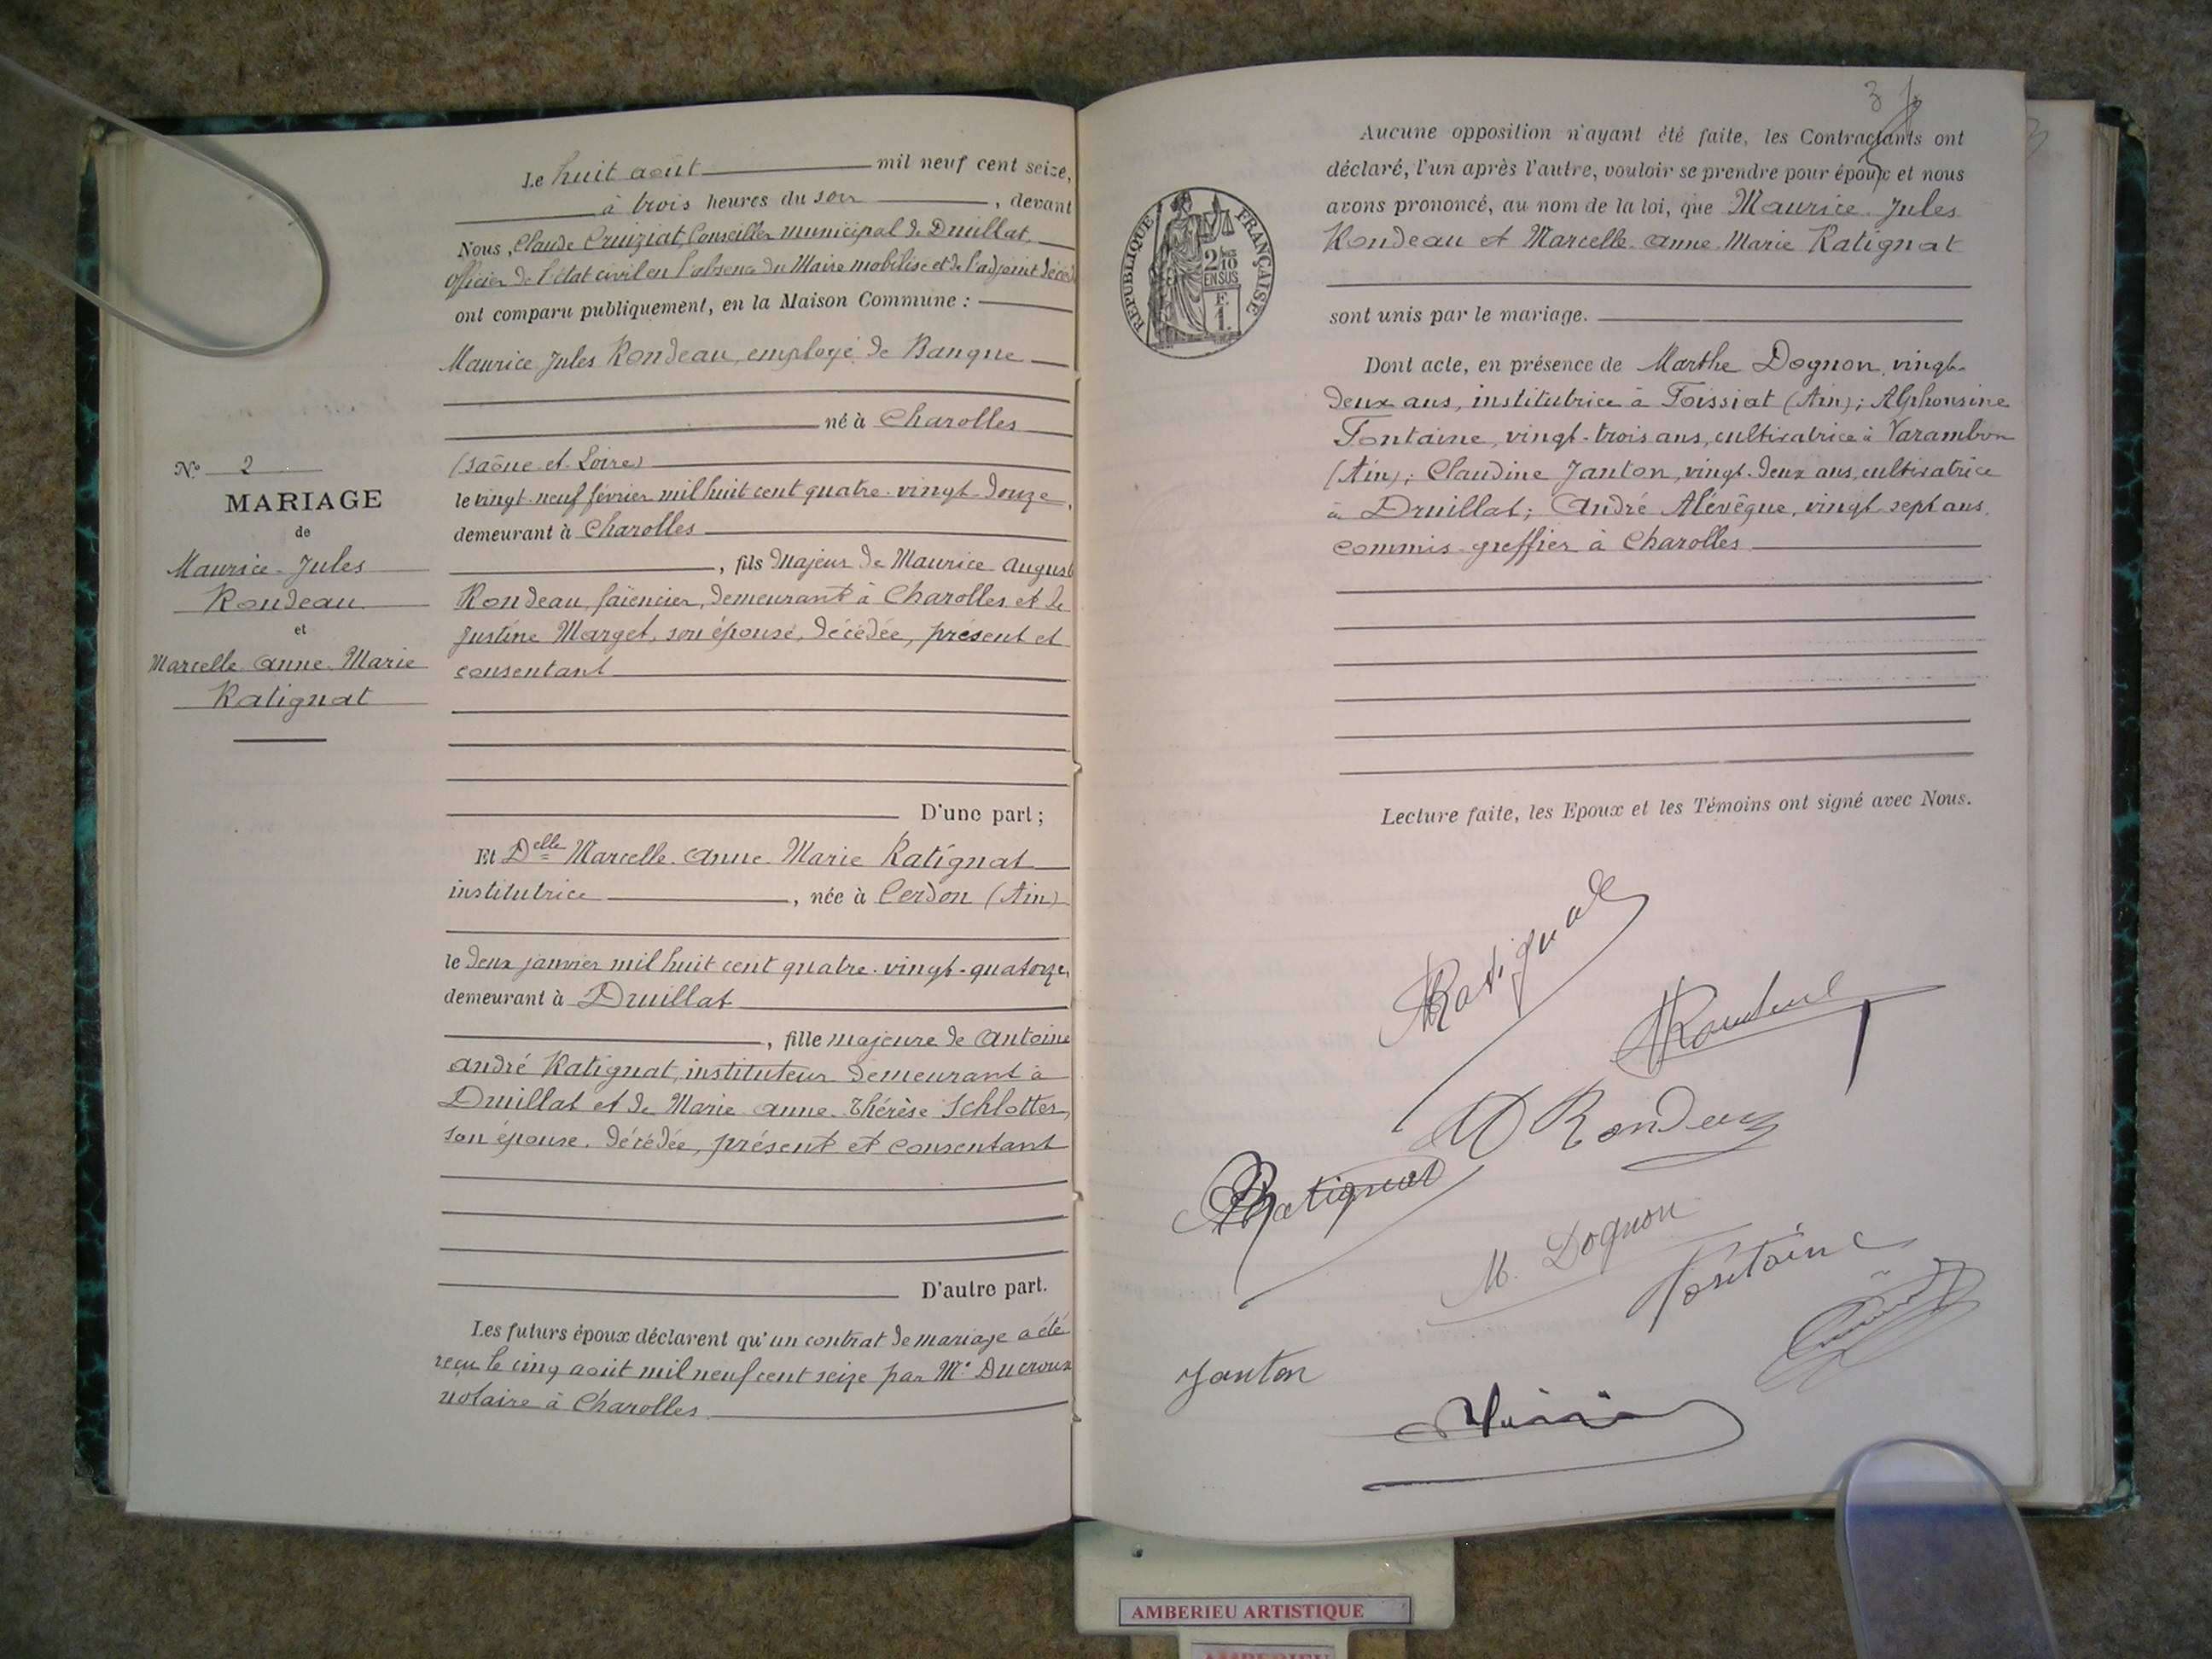 Le huit août mil neuf cent seize,
à trois heures du soir, devant
Nous, Claude Cruiziat, Conseiller municipal de Druillat,
officier de l'état civil en l'absence du Maire mobilisé et de l'adjoint décédé
ont comparu publiquement, en la Maison Commune :
Maurice Jules Rondeau, employé de Banque
né à Charolles
(Saône-et-Loire)
le vingt-neuf février mil huit cent quatre-vingt-douze,
demeurant à Charolles
, fils Majeur de Maurice Auguste
Rondeau, faïencier, demeurant à Charolles et de
Justine Marget, son épouse, décédée, présent et
consentant
D'une part ;
Et Delle Marcelle Anne Marie Ratignat
institutrice, née à Cerdon (Ain)
le deux janvier mil huit cent quatre-vingt-quatorze,
demeurant à Druillat
, fille majeure de Antoine
André Ratignat, instituteur demeurant à
Druillat et de Marie Anne Thérèse Schlotter,
son épouse, décédée, présent et consentant
D'autre part.
Les futurs époux déclarent qu'un contrat de mariage a été
reçu le cinq août mil neuf cent seize par Me Ducroux
notaire à Charolles
No 2
MARIAGE
de
Maurice-Jules
Rondeau
et
Marcelle Anne Marie
Ratignat
3
Aucune opposition n'ayant été faite, les Contractants ont
déclaré, l'un après l'autre, vouloir se prendre pour époux et nous
avons prononcé, au nom de la loi, que Maurice Jules
Rondeau et Marcelle Anne Marie Ratignat
sont unis par le mariage.
RÉPUBLIQUE FRANÇAISE
2/10
EN SUS
F.
1.
Dont acte, en présence de Marthe Dognon, vingt-
deux ans, institutrice à Foissiat (Ain); Alphonsine
Fontaine, vingt-trois ans, cultivatrice à Varambon
(Ain); Claudine Janton, vingt-deux ans, cultivatrice
à Druillat; André Alévêque, vingt sept ans,
commis-greffier à Charolles
Lecture faite, les Epoux et les Témoins ont signé avec Nous.
Ratignat
Rondeau
Rondeau
Ratignat
M. Dognon
Fontaine
Janton
AMBERIEU ARTISTIQUE
AMBERIEU